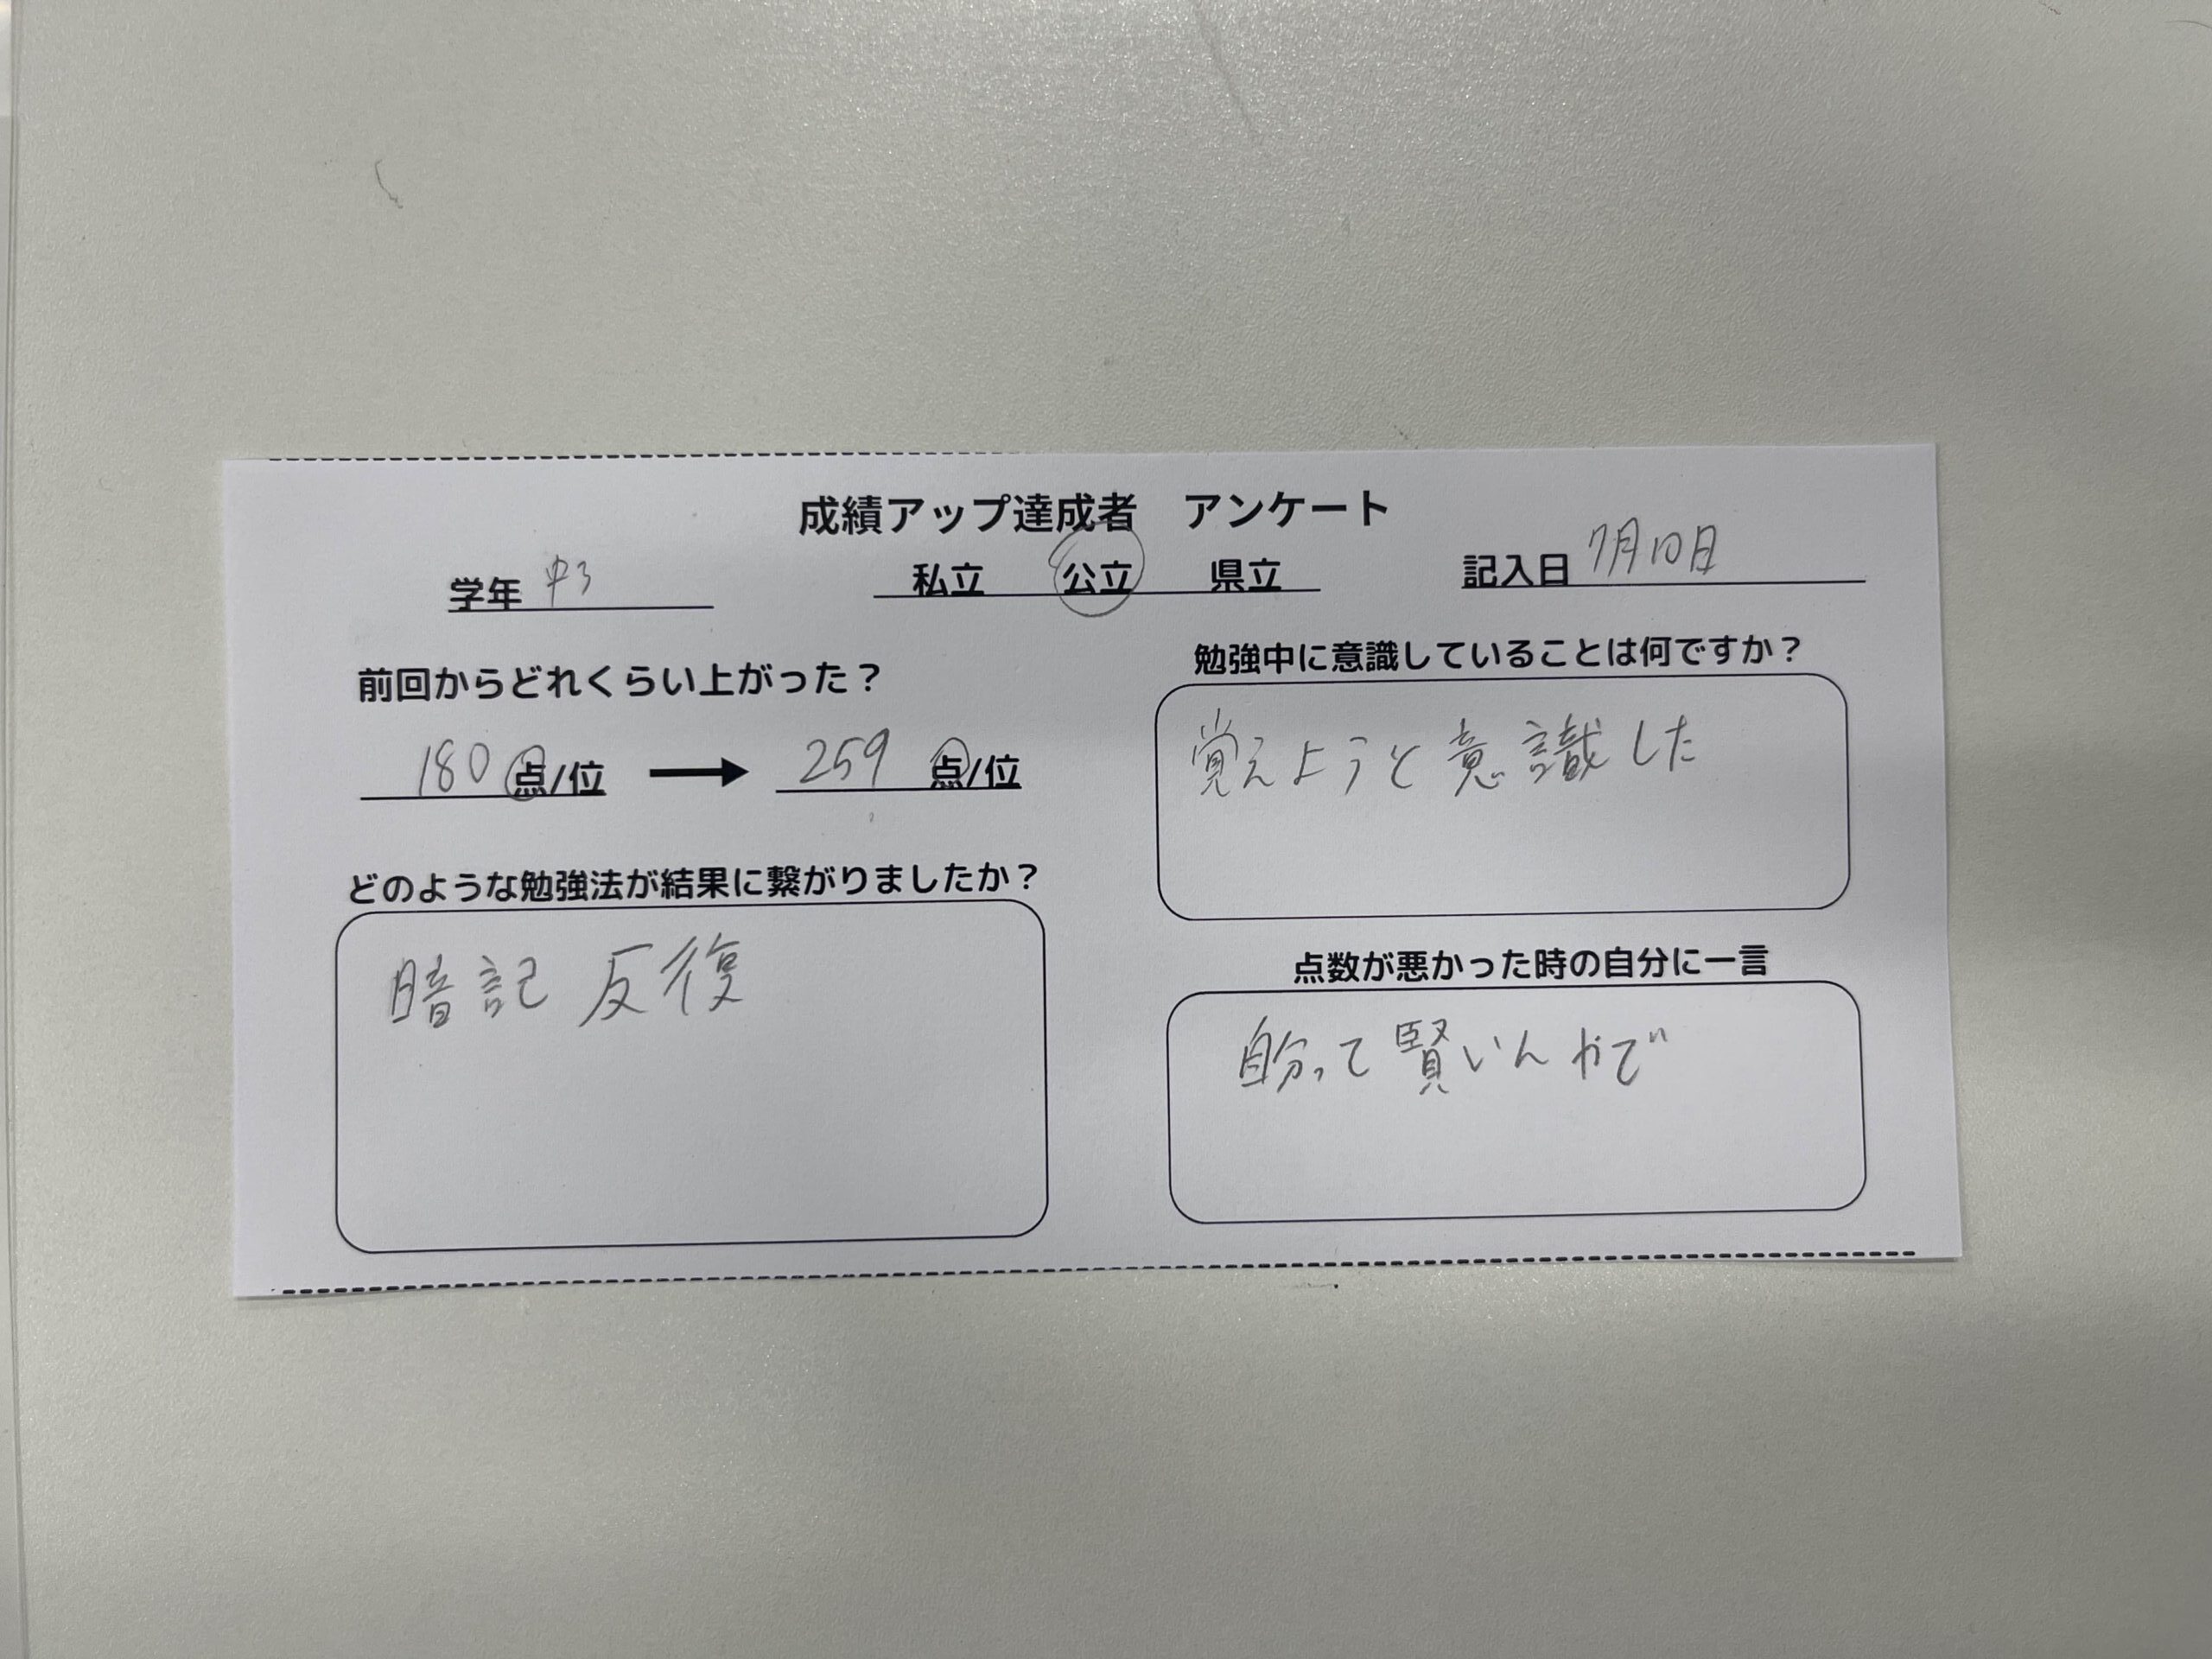 成績アップ達成者 アンケート
学年 中3 私立 公立 県立 記入日 7月10日
前回からどれくらい上がった？
180 点/位 → 259 点/位
どのような勉強法が結果に繋がりましたか？
暗記 反復
勉強中に意識していることは何ですか？
覚えようと意識した
点数が悪かった時の自分に一言
自分って賢いんやで